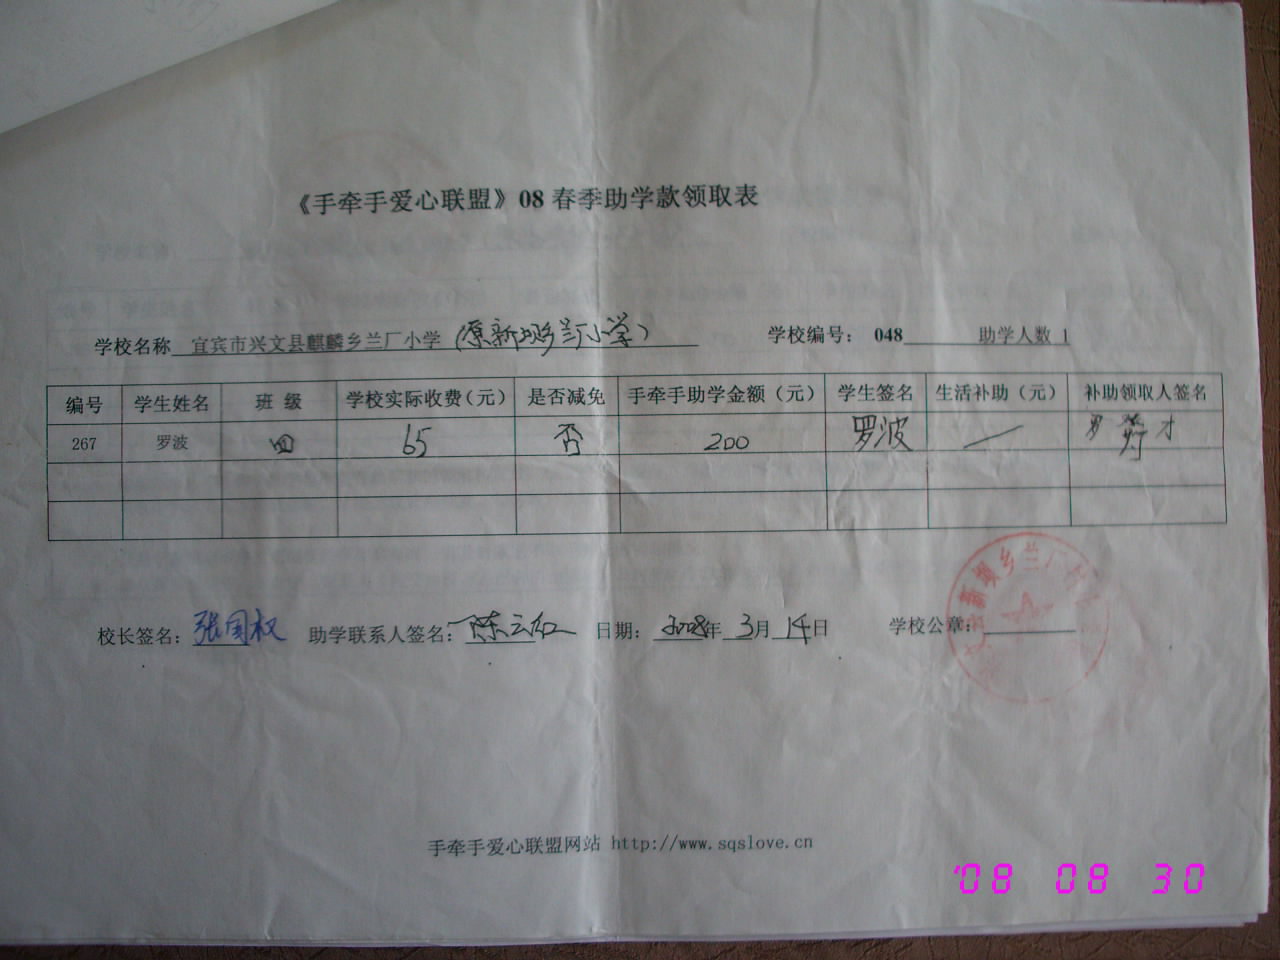 《手牵手爱心联盟》08 春季助学款领取表
学校名称 宜宾市兴文县麒麟乡兰厂小学（原新坝乡兰厂小学） 学校编号： 048 助学人数 1
编号 学生姓名 班 级 学校实际收费（元） 是否减免 手牵手助学金额（元） 学生签名 生活补助（元） 补助领取人签名
267 罗波 四 65 否 200 罗波 — 罗 才
校长签名：张国权 助学联系人签名：陈云红 日期：2008年 3月 14日 学校公章：
新坝乡兰厂村
手牵手爱心联盟网站 http://www.sqslove.cn
'08 08 30